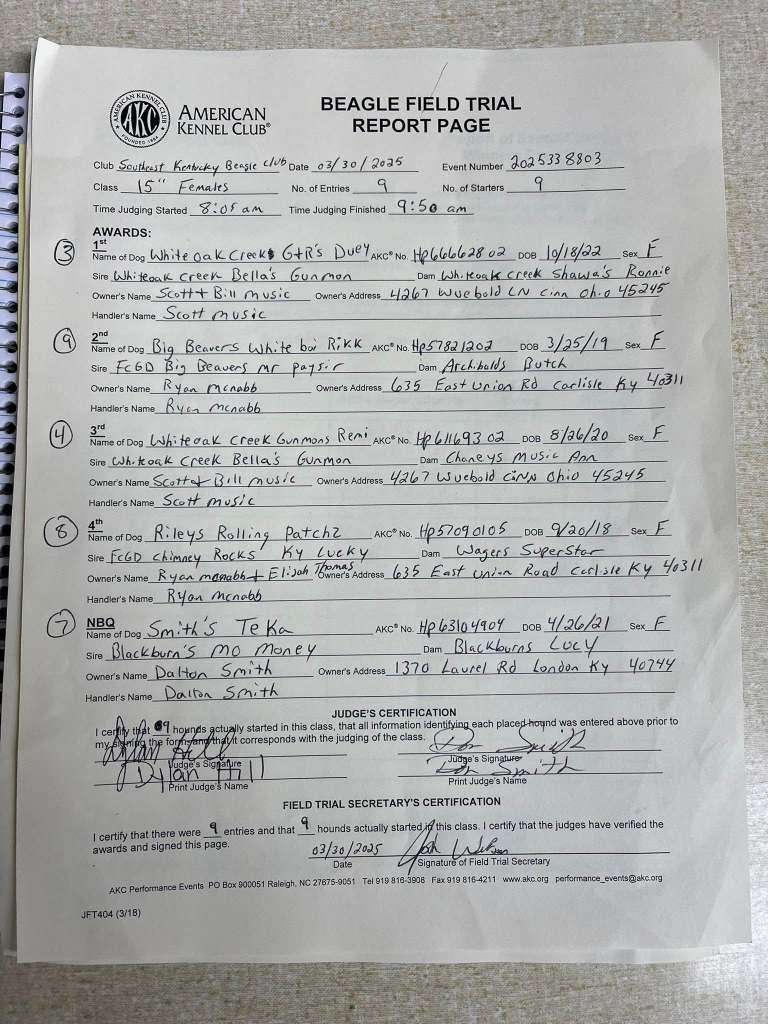 AMERICAN KENNEL CLUB
FOUNDED 1884
AKC
AMERICAN
KENNEL CLUB®
BEAGLE FIELD TRIAL
REPORT PAGE
Club Southeast Kentucky Beagle Club Date 03/30/2025 Event Number 2025338803
Class 15" Females No. of Entries 9 No. of Starters 9
Time Judging Started 8:05 am Time Judging Finished 9:50 am
AWARDS:
3 1st
Name of Dog White oak Creeks G+R's Duey AKC® No. Hp66662802 DOB 10/18/22 Sex F
Sire Whiteoak Creek Bella's Gunmon Dam Whiteoak Creek Shawa's Ronnie
Owner's Name Scott + Bill music Owner's Address 4267 Wuebold LN Cinn Ohio 45245
Handler's Name Scott music
9 2nd
Name of Dog Big Beavers White boi Rikk AKC® No. Hp57821202 DOB 3/25/19 Sex F
Sire FCGD Big Beavers mr paysir Dam Archibalds Butch
Owner's Name Ryan mcnabb Owner's Address 635 East Union Rd Carlisle Ky 40311
Handler's Name Ryan mcnabb
4 3rd
Name of Dog Whiteoak Creek Gunmons Remi AKC® No. Hp61169302 DOB 8/26/20 Sex F
Sire Whiteoak Creek Bella's Gunmon Dam Chaneys Music Ann
Owner's Name Scott + Bill music Owner's Address 4267 Wuebold Cinn Ohio 45245
Handler's Name Scott music
8 4th
Name of Dog Rileys Rolling Patchz AKC® No. Hp57090105 DOB 9/20/18 Sex F
Sire FCGD Chimney Rocks Ky Lucky Dam Wagers SuperStar
Owner's Name Ryan mcnabb + Elijah Thomas Owner's Address 635 East Union Road Carlisle Ky 40311
Handler's Name Ryan mcnabb
7 NBQ
Name of Dog Smith's Teka AKC® No. Hp63104904 DOB 4/26/21 Sex F
Sire Blackburn's Mo Money Dam Blackburns Lucy
Owner's Name Dalton Smith Owner's Address 1370 Laurel Rd London Ky 40744
Handler's Name Dalton Smith
JUDGE'S CERTIFICATION
I certify that 9 hounds actually started in this class, that all information identifying each placed hound was entered above prior to
my signing the form and that it corresponds with the judging of the class.
Dylan Hill Don Smith
Judge's Signature Judge's Signature
Dylan Hill Don Smith
Print Judge's Name Print Judge's Name
FIELD TRIAL SECRETARY'S CERTIFICATION
I certify that there were 9 entries and that 9 hounds actually started in this class. I certify that the judges have verified the
awards and signed this page.
03/30/2025 Josh
Date Signature of Field Trial Secretary
AKC Performance Events PO Box 900051 Raleigh, NC 27675-9051 Tel 919 816-3908 Fax 919 816-4211 www.akc.org performance_events@akc.org
JFT404 (3/18)